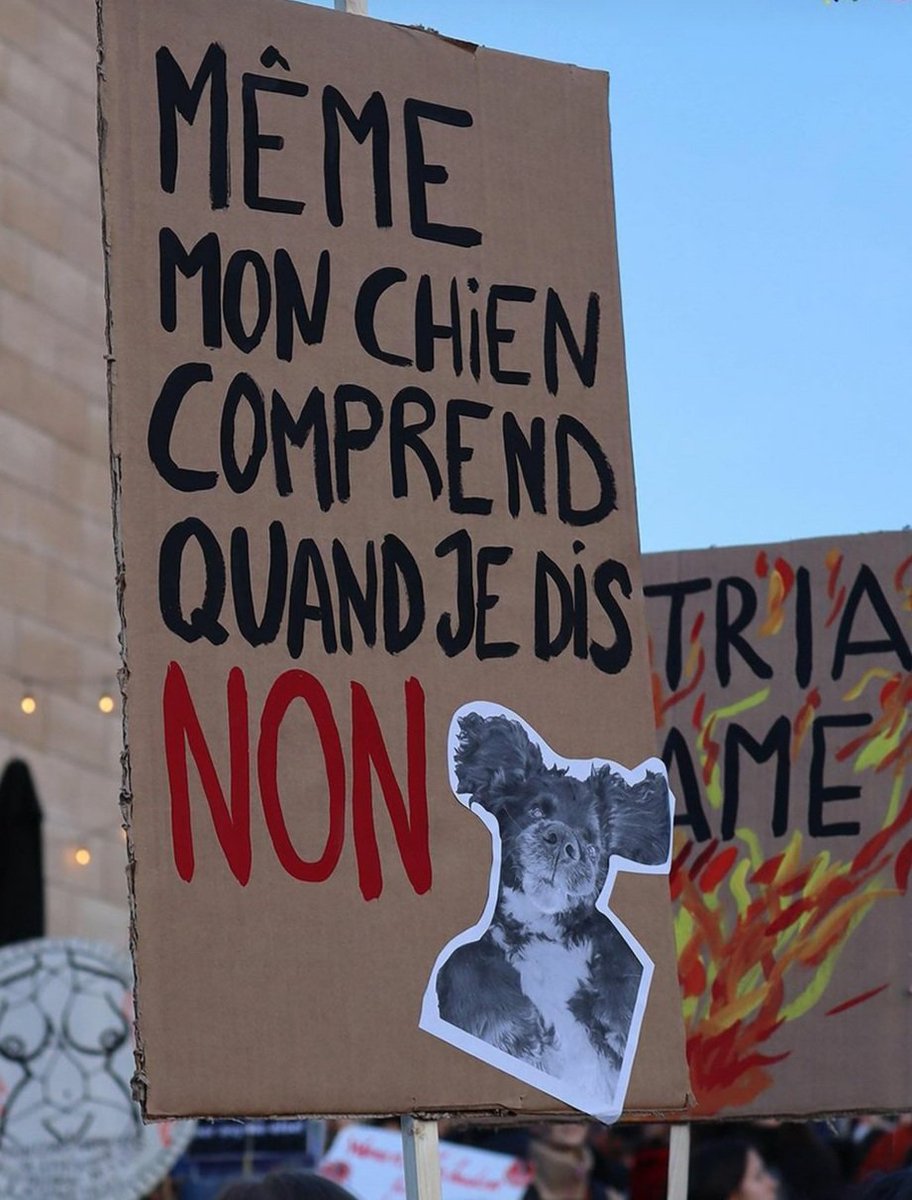 MÊME
MON CHiEN
COMPREND
QUAND JE DiS
NON
TRIA
AME